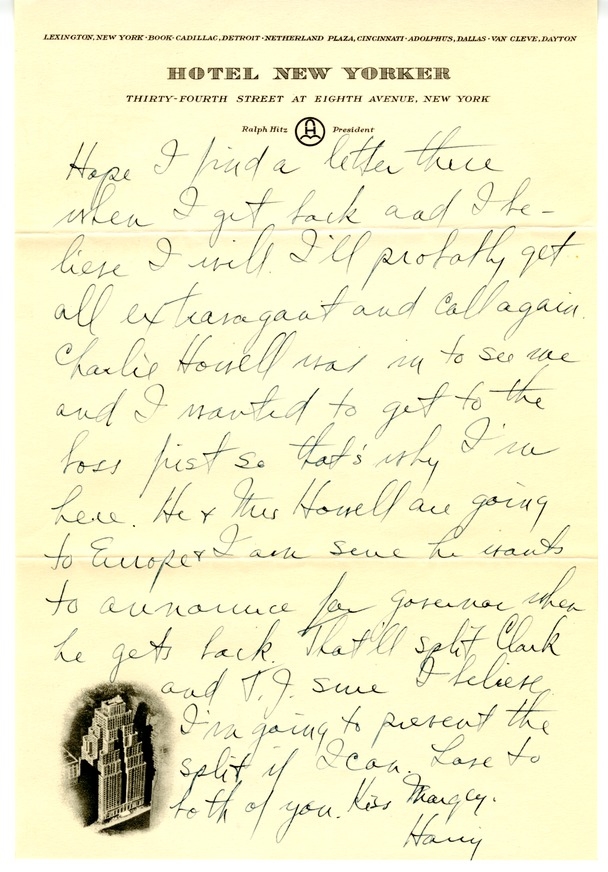 LEXINGTON, NEW YORK · BOOK-CADILLAC, DETROIT · NETHERLAND PLAZA, CINCINNATI · ADOLPHUS, DALLAS · VAN CLEVE, DAYTON
HOTEL NEW YORKER
THIRTY-FOURTH STREET AT EIGHTH AVENUE, NEW YORK
Ralph Hitz President
Hope I find a letter there
when I get back and I be-
lieve I will. I'll probably get
all extravagant and call again.
Charlie Howell was in to see me
and I wanted to get to the
boss first so that's why I'm
here. He & Mrs Howell are going
to Europe & I am sure he wants
to announce for governor when
he gets back. That'll split Clark
and T.J. sure I believe
I'm going to prevent the
split if I can. Love to
both of you. Kiss Margey.
Harry